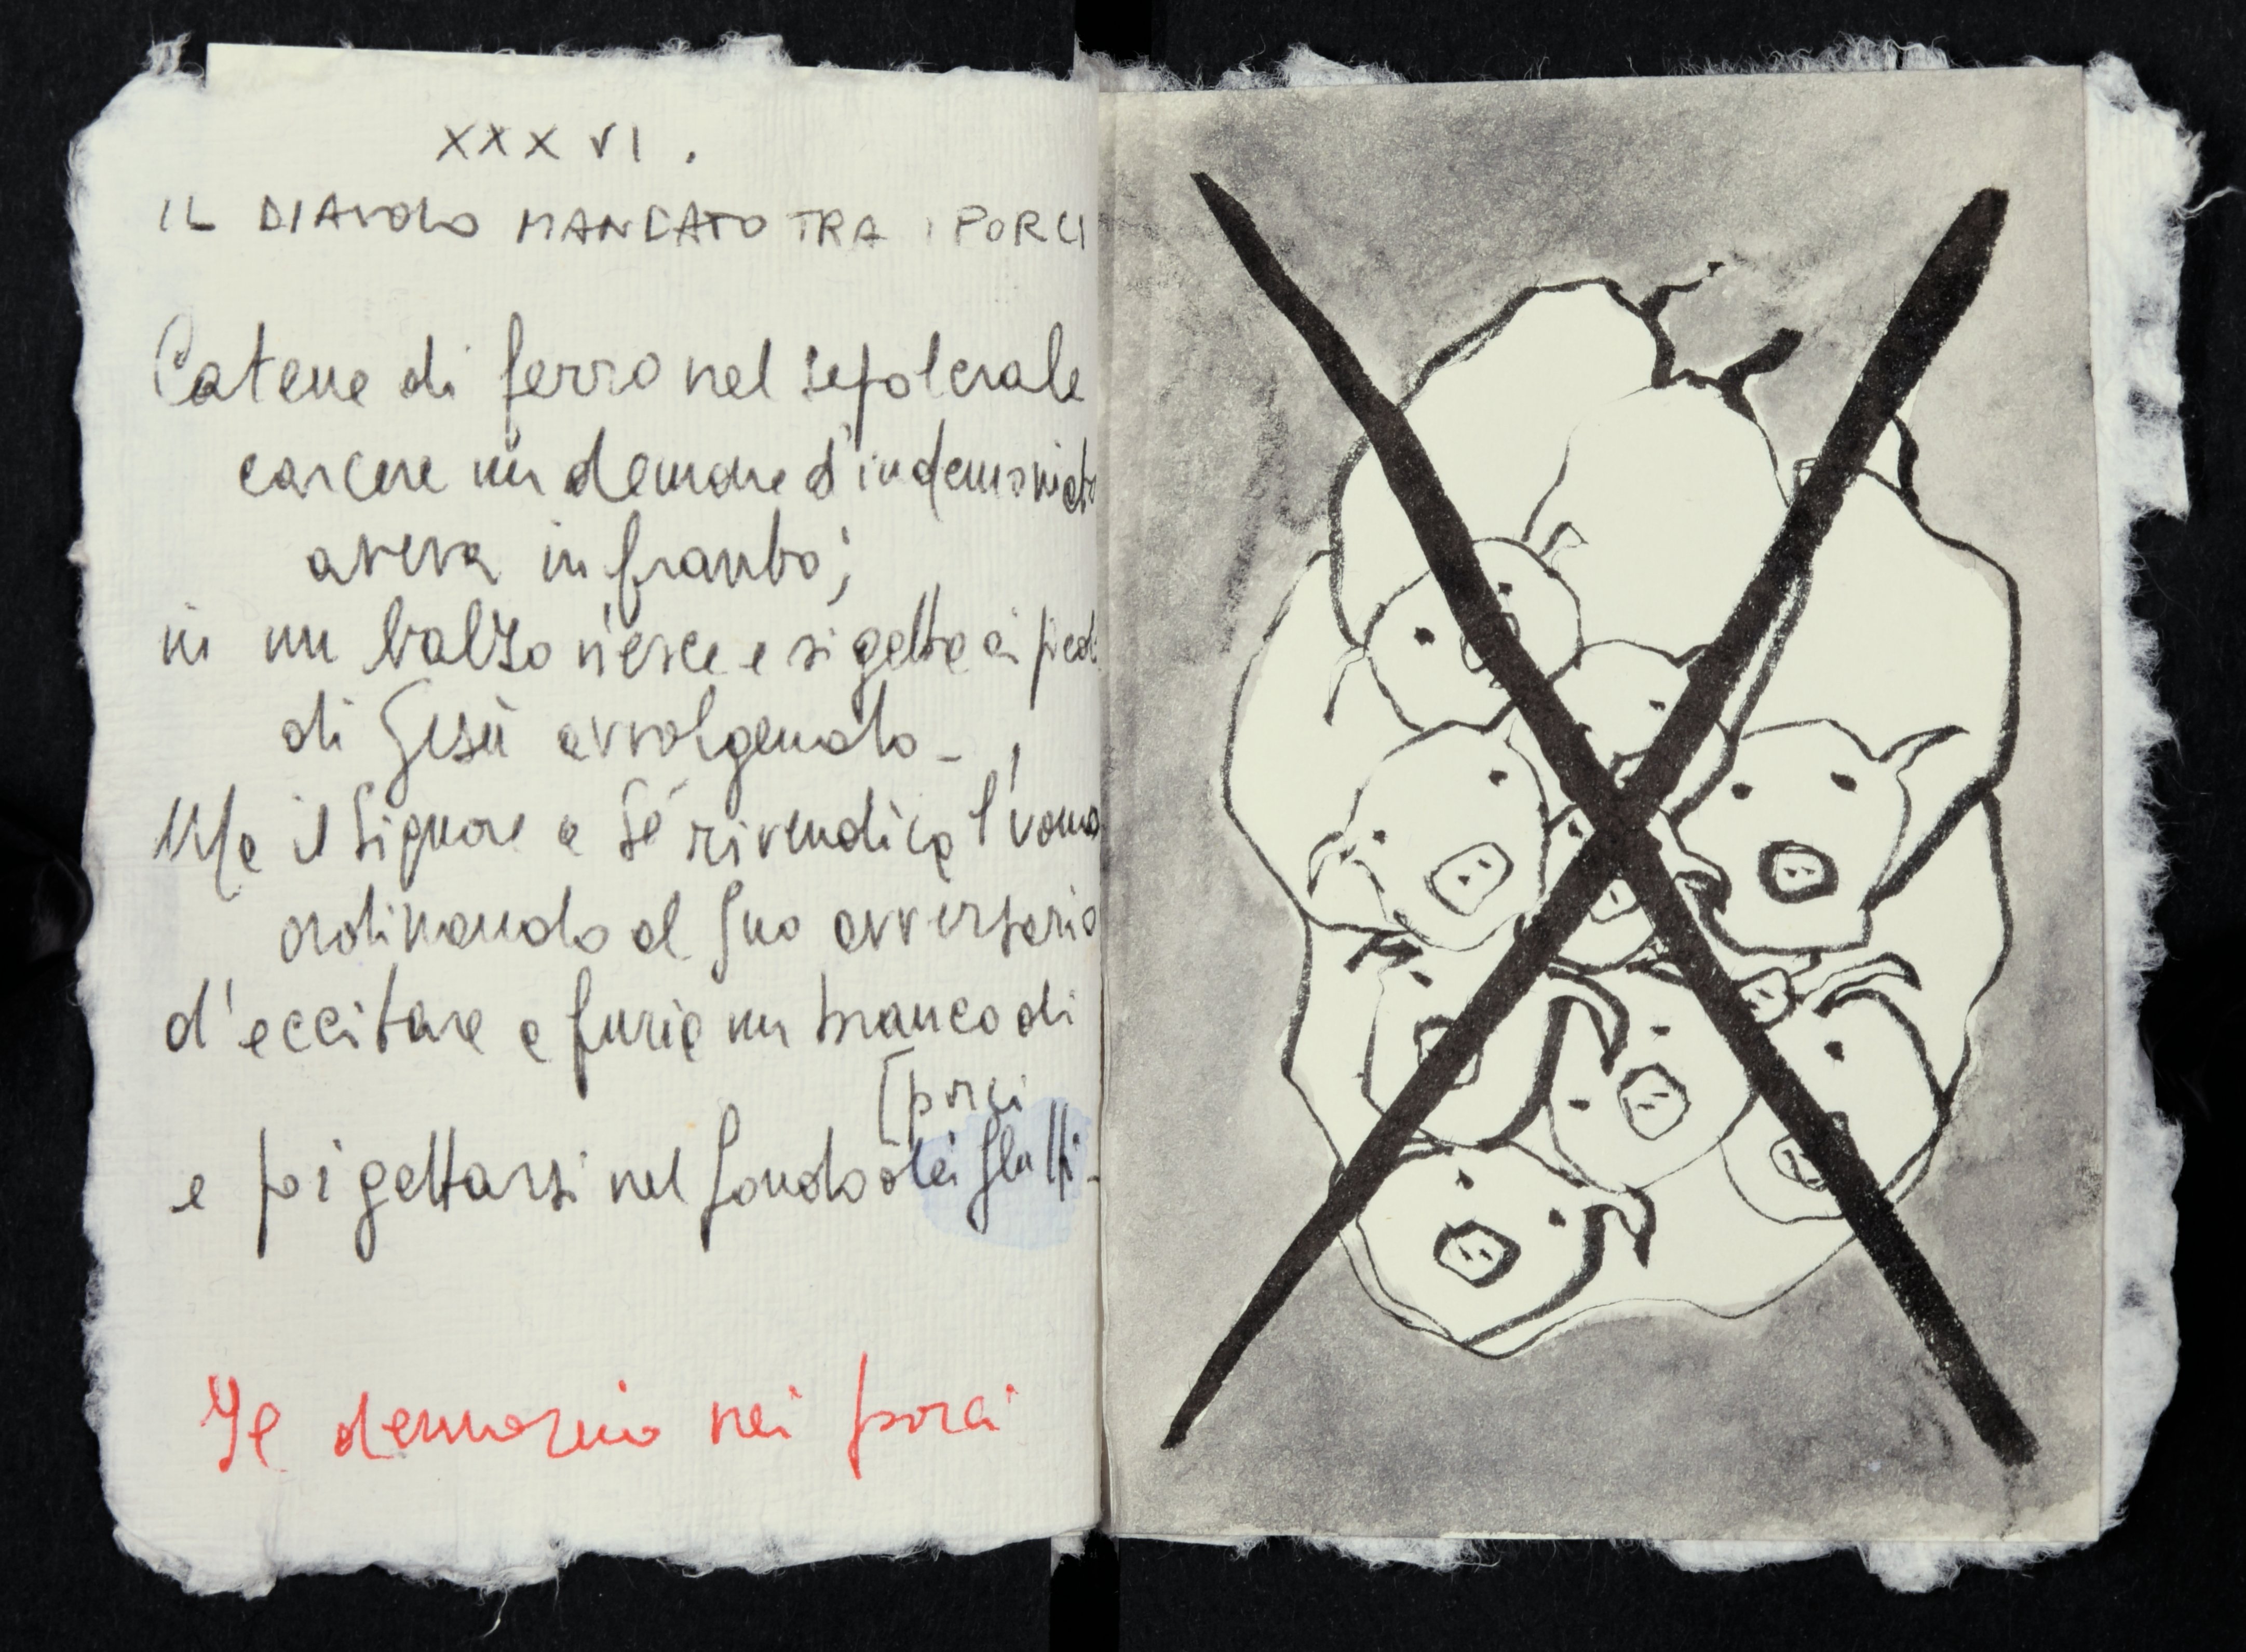 XXXVI.
IL DIAVOLO MANDATO TRA I PORCI
Catene di ferro nel sepolcrale
carcere un demone d'indemoniato
aveva infranto;
in un balzo n'esce e si getta ai piedi
di Gesù avvolgendo_
Ma il Signore a Sé rivendica l'uomo
ordinando al Suo avversario
d'eccitare a furia un branco di
[porci
e poi gettarsi nel fondo dei flutti_
Il demonio nei porci